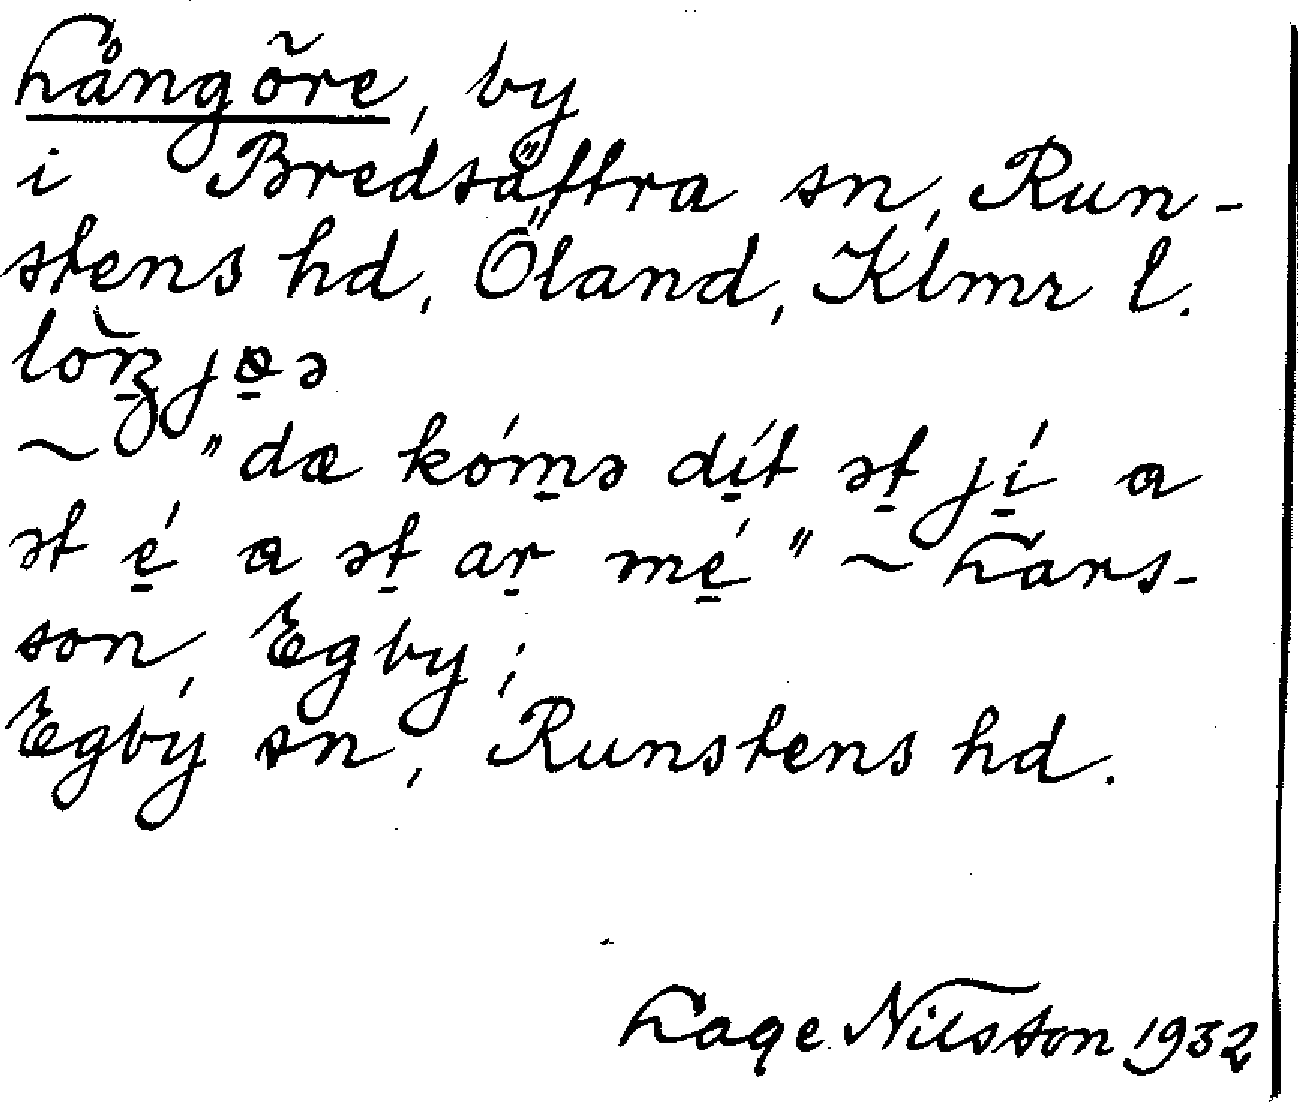 Långöre, by
i Bredsättra sn, Run-
stens hd, Öland, Klmr l.
~ "dæ kómə dít ət jí a
ət é a ət ar mé" ~ Lars-
son, Egby;
Egby sn, Runstens hd.
Lage Nilsson 1932